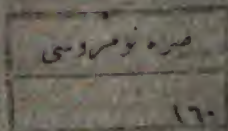 صره نومروسی
١٦٠